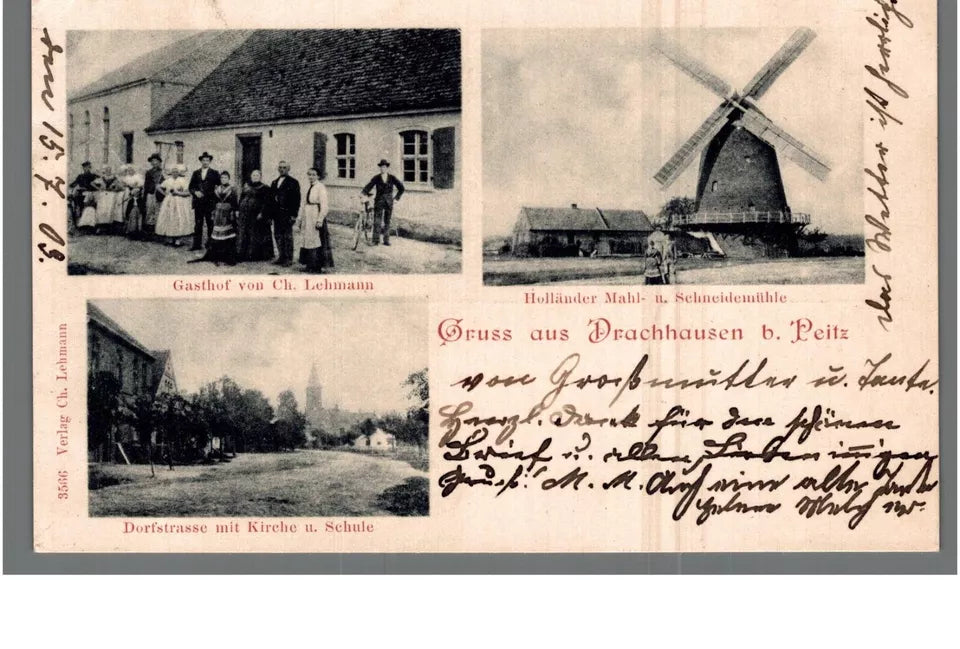 den 15. 7. 03.
das Wetter ist herrlich
Gasthof von Ch. Lehmann
Holländer Mahl- u. Schneidemühle
Gruss aus Drachhausen b. Peitz
3566 Verlag Ch. Lehmann
von Großmutter u. Tante.
Herzl. Dank für den schönen
Brief u. allen Lieben innigen
Gruß! M. M. Auch eine alte
Dorfstrasse mit Kirche u. Schule